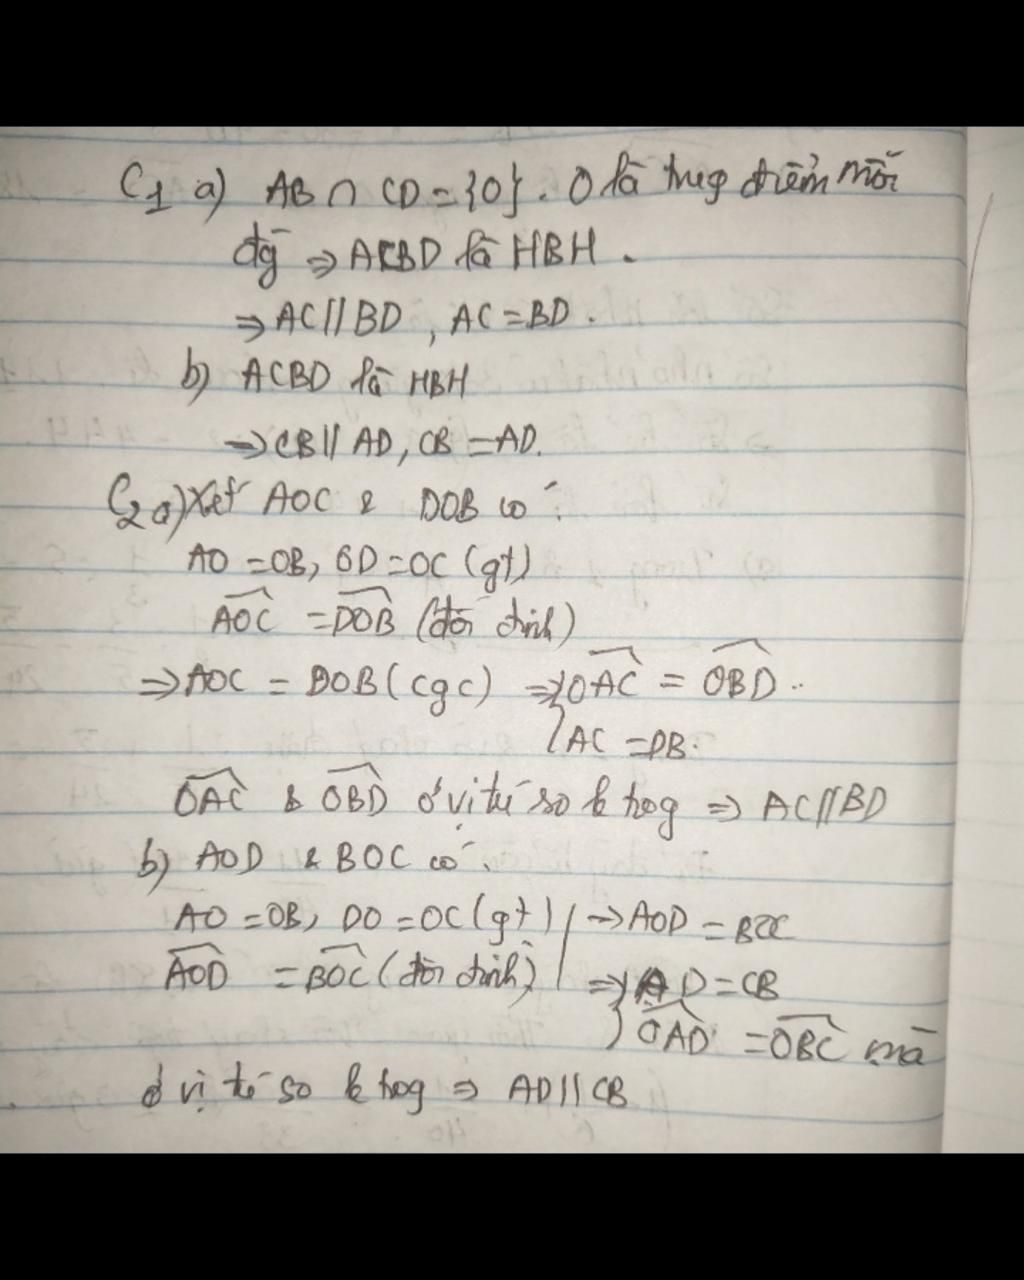 C1 a) AB ∩ CD = {O}. O là trug điểm mỗi
đg̃ ⇒ ACBD là HBH.
⇒ AC // BD, AC = BD.
b) ACBD là HBH
→ CB // AD, CB = AD.
C2 a) Xét AOC & DOB có:
AO = OB, OD = OC (gt)
\widehat{AOC} = \widehat{DOB} (đối đỉnh)
⇒ AOC = DOB (cgc) ⇒ { \widehat{OAC} = \widehat{OBD}.
AC = DB.
\widehat{OAC} & \widehat{OBD} ở vị trí so le trog ⇒ AC // BD
b) AOD & BOC có:
AO = OB, DO = OC (gt) | → AOD = BOC
\widehat{AOD} = \widehat{BOC} (đối đỉnh) | ⇒ { AD = CB
\widehat{OAD} = \widehat{OBC} mà
ở vị trí so le trog ⇒ AD // CB